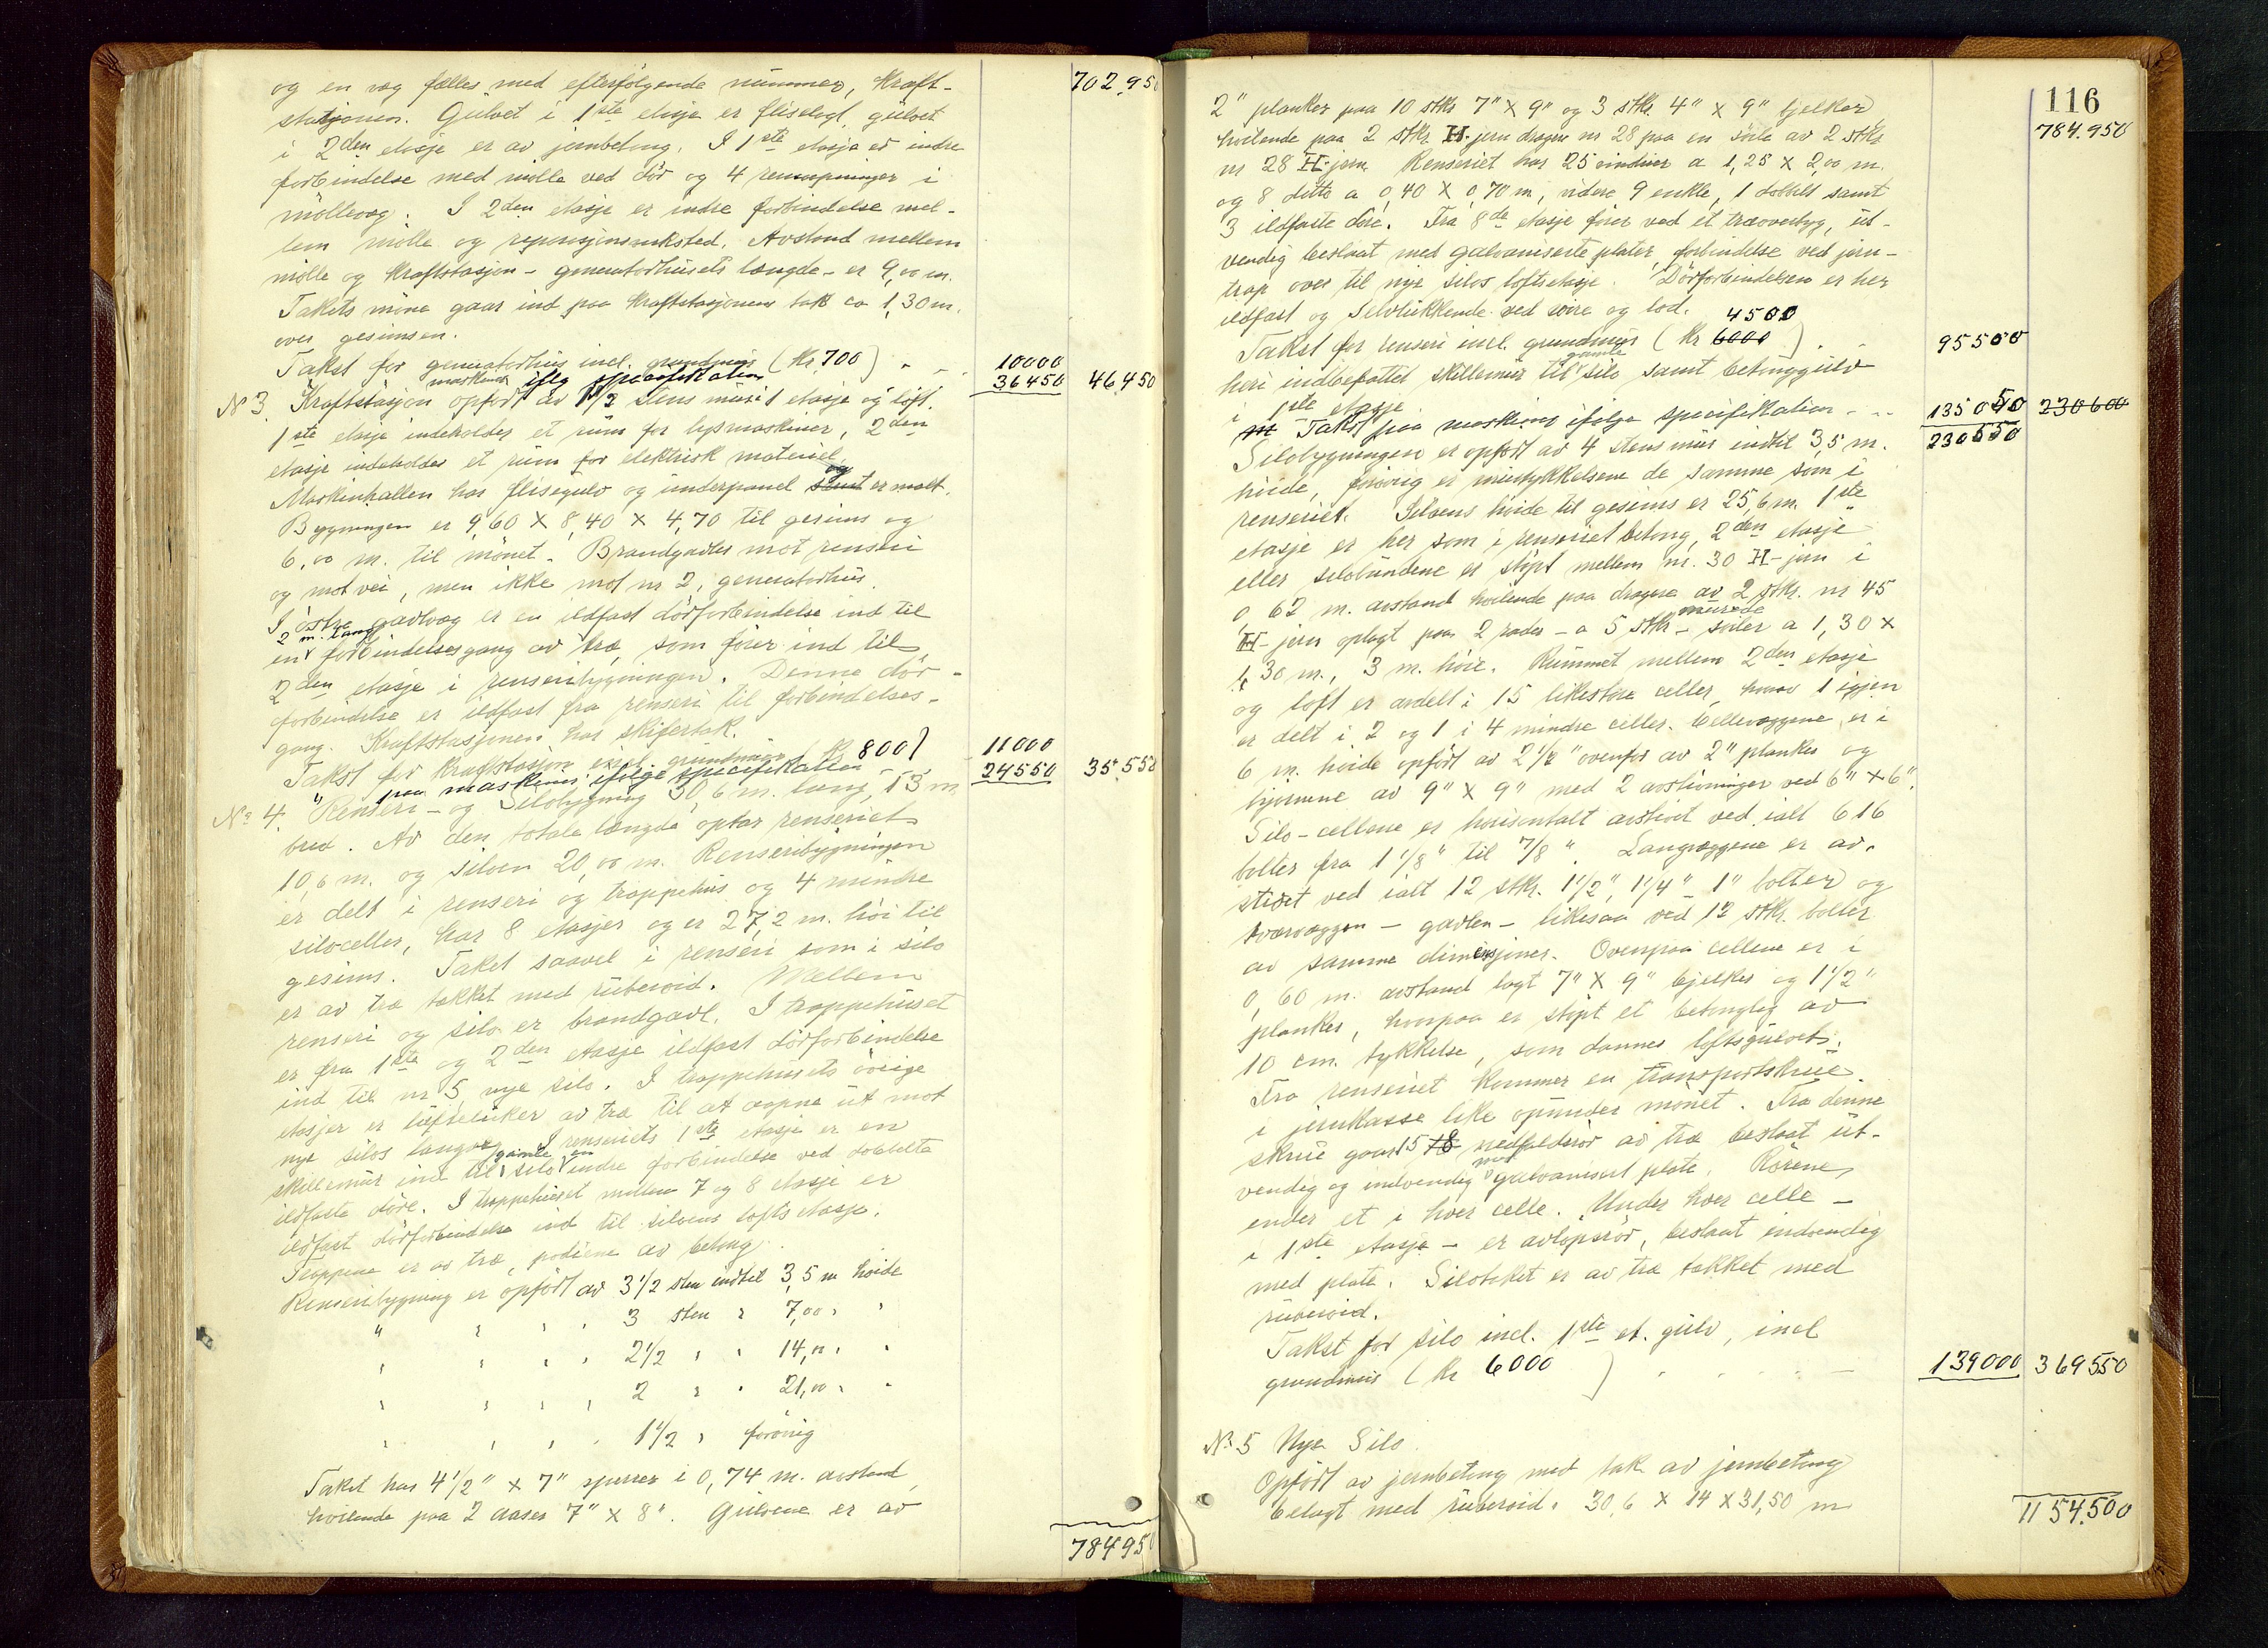 702.950
og en væg fælles med efterfølgende nummer, kraft-
stasjonen. Gulvet i 1ste etasje er fliselagt, gulvet
i 2den etasje er av jernbetong. I 1ste etasje er indre
forbindelse med mølle ved dør og 4 i
møllevæg. I 2den etasje er indre forbindelse mel-
lem mølle og reparasjonsverksted. Avstand mellem
mølle og kraftstasjon - generatorhusets længde - er 9,00 m.
Takets møne gaar ind paa kraftstasjonens tak ca 1,30 m.
over gesimsen.
Takst for generatorhus incl. grundmur (Kr. 700) 10000
maskineri iflg specifikation 36450 46.450
No 3. Kraftstasjon opført av 1 1/2 stens mur i 1 etasje og loft.
1ste etasje indeholder et rum for lysmaskiner, 2den
etasje indeholder et rum for elektrisk materiel.
Maskinhallen har flisegulv og underpanel samt og er malt.
Bygningen er 9,60 X 8,40 X 4,70 til gesims og
6,00 m. til mønet. Brandgavler mot renseri
og mot vei, men ikke mot nr 2, generatorhus.
I østre gavlvæg er en ildfast dørforbindelse ind til
2 m. lang
en forbindelsesgang av træ, som fører ind til
2den etasje i renseribygningen. Denne dør-
forbindelse er ildfast fra renseri til forbindelses-
gang. Kraftstasjonen har skifertak.
Takst for kraftstasjon excl. grundmur Kr. 800) 11000
" paa maskineri ifølge specifikation 24550 35.550
No 4. Renseri- og Silobygning 30,6 m. lang, 13 m
bred. Av den totale længde optar renseriet
10,6 m. og siloen 20,00 m. Renseribygningen
er delt i renseri og trappehus og 4 mindre
siloceller, har 8 etasjer og er 27,2 m. høi til
gesims. Taket saavel i renseri som i silo
er av træ tækket med ruberoid. Mellem
renseri og silo er brandgavl. I trappehuset
er fra 1ste og 2den etasje ildfast dørforbindelse
ind til nr 5, nye silo. I trappehusets øvrige
etasjer er lufteluker av træ til at aapne ut mot
nye silos langvæg. I renseriets 1ste etasje er en
skillemur ind til gamle silo en indre forbindelse ved dobbelte
ildfaste døre. I trappehuset mellem 7 og 8 etasje er
ildfast dørforbindelse ind til siloens loftsetasje.
Trappene er av træ, podiene av betong.
Renseribygning er opført av 3 1/2 sten indtil 3,5 m høide
" " " " 3 sten " 7,00 " "
" " " " 2 1/2 " " 14,00 " "
" " " " 2 " " 21,00 " "
" " " " 1 1/2 " forøvrig
Taket har 4 1/2" x 7" sperrer i 0,74 m. avstand,
hvilende paa 2 aaser 7" x 8". Gulvene er av
784950
116
784.950
2" planker paa 10 stks 7" X 9" og 3 stk. 4" x 9" bjelker
hvilende paa 2 stks. H-jern dragere nr 28 paa en søile av 2 stks
nr 28 H-jern. Renseriet har 25 vinduer a 1,25 X 2,00 m.
og 8 ditto a 0,40 X 0,70 m, videre 9 enkle, 1 dobbelt samt
3 ildfaste døre. Fra 8de etasje fører ved et træoverbyg, ut-
vendig beslaat med galvaniserte plater, forbindelse ved jern-
trap over til nye silos loftsetasje. Dørforbindelsen er her
ildfast og selvlukkende ved snore og lod.
Takst for renseri incl. grundmur (Kr 6000 4500) 95500
heri indbefattet skillemur til gamle silo samt betonggulv
i 1ste etasje.
Takst paa maskineri ifølge specifikation 135050 230600
230550
Silobygningen er opført av 4 stens mur indtil 3,5 m.
høide, forøvrig er murtykkelsene de samme som i
renseriet. Siloens høide til gesims er 25,6 m. 1ste
etasje er her som i renseriet betong, 2den etasje
eller silobundene er støpt mellem nr. 30 H-jern i
0,62 m. avstand hvilende paa dragere av 2 stks. nr 45
H-jern oplagt paa 2 rader - a 5 stks - murede søiler a 1,30 x
1,30 m., 3 m. høie. Rummet mellem 2den etasje
og loft er avdelt i 15 likestore celler, hvorav 1 igjen
er delt i 2 og 1 i 4 mindre celler. Cellevæggene er i
6 m. høide opført av 2 1/2" ovenfor av 2" planker og
hjørnene av 9" x 9" med 2 avstivninger ved 6" x 6".
Silo-cellene er horisontalt avstivet ved ialt 616
bolter fra 1 1/8" til 7/8". Langvæggene er av-
stivet ved ialt 12 stks. 1 1/2", 1 1/4" 1" bolter og
tværvæggen - gavlen - likesaa ved 12 stks. bolter
av samme dimensjoner. Ovenpaa cellene er i
0,60 m. avstand lagt 7" X 9" bjelker og 1 1/2"
planker, hvorpaa er støpt et betonglag av
10 cm. tykkelse, som danner loftsgulvet.
Fra renseriet kommer en transportskrue
i jernkasse like opunder mønet. Fra denne
skrue gaar 15 18 nedfaldsrør av træ beslaat ut-
vendig og indvendig med galvanisert plate. Rørene
ender et i hver celle. Under hver celle -
i 1ste etasje - er avløpsrør, beslaat indvendig
med plate. Silotaket er av træ tækket med
ruberoid.
Takst for silo incl. 1ste et. gulv, incl
grundmur (Kr 6000) 139000 369550
No 5 Nye Silo.
Opført av jernbetong med tak av jernbetong
belagt med ruberoid. 30,6 X 14 X 31,50 m
1154.500